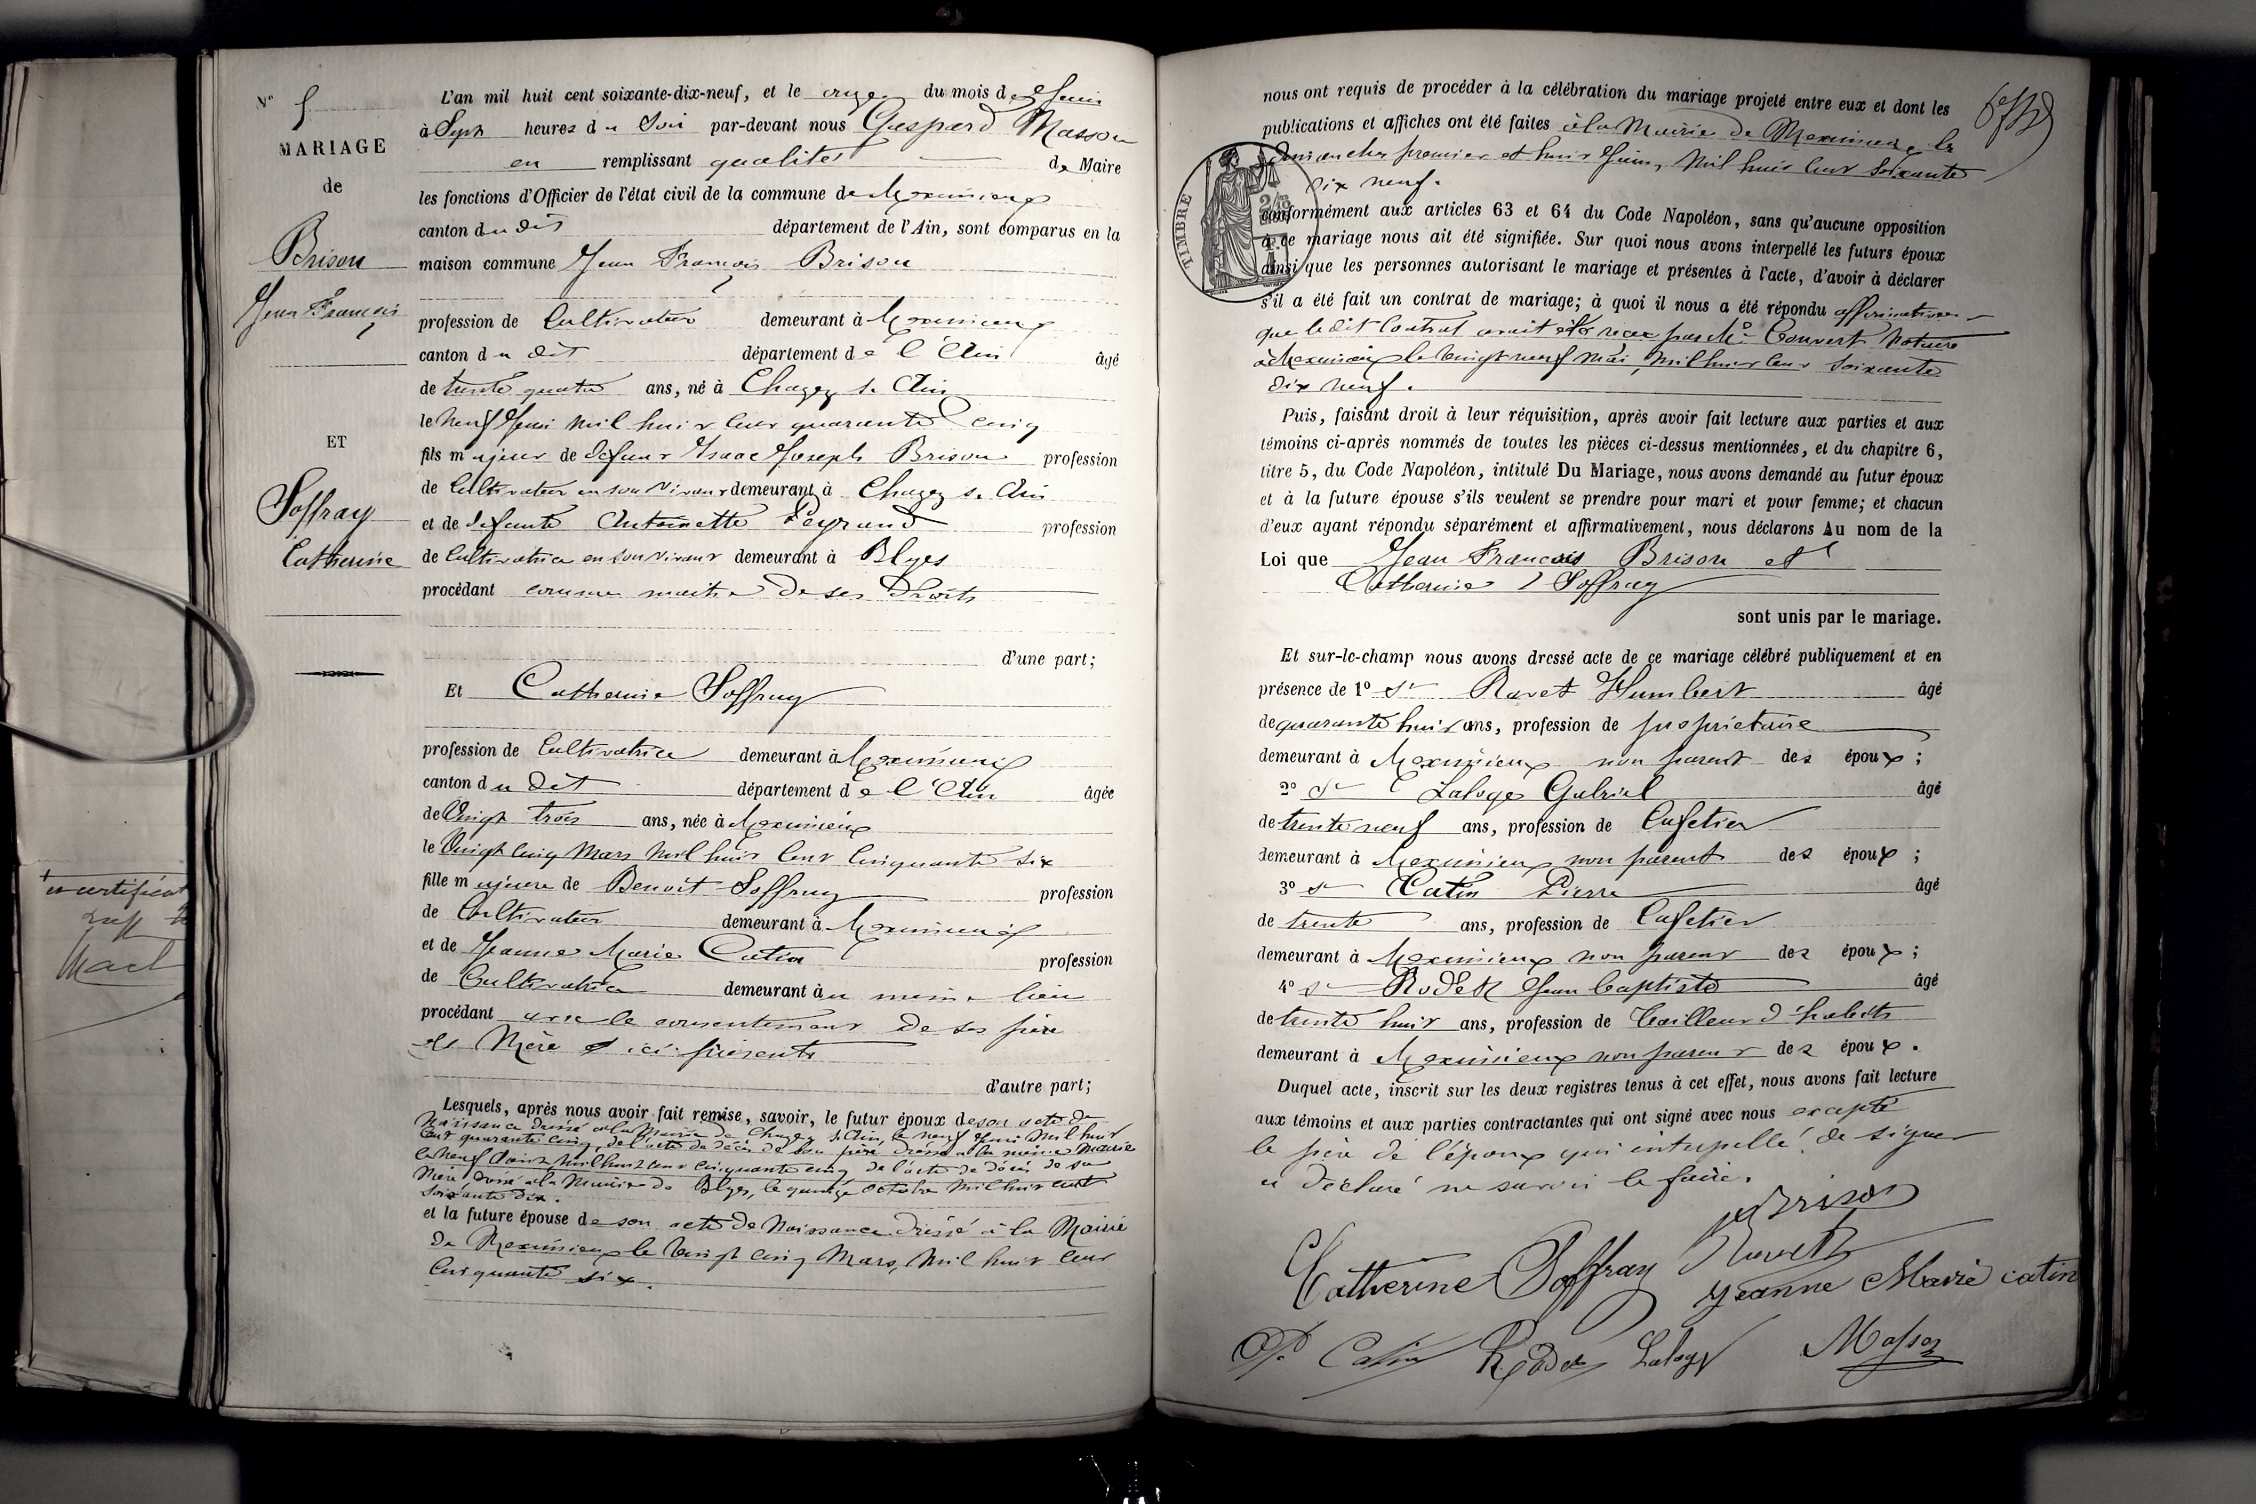 N° 5
MARIAGE
de
Brison
Jean François
ET
Soffray
Catherine
L'an mil huit cent soixante-dix-neuf, et le onze du mois de Juin
à Sept heures du Soir par-devant nous Gaspard Masson
en remplissant qualités de Maire
les fonctions d'Officier de l'état civil de la commune de Meximieux
canton du dit département de l'Ain, sont comparus en la
maison commune Jean François Brison
profession de Cultivateur demeurant à Meximieux
canton du dit département de l'Ain âgé
de trente quatre ans, né à Chazey s. Ain
le neuf Juin mil huit cent quarante cinq
fils majeur de defunt Isaac Joseph Brison profession
de Cultivateur en son vivant demeurant à Chazey s. Ain
et de defunte Antoinette Peyraud profession
de Cultivatrice en son vivant demeurant à Blyes
procédant comme maitre de ses droits
d'une part;
Et Catherine Soffray
profession de Cultivatrice demeurant à Meximieux
canton du dit département de l'Ain âgée
de Vingt trois ans, née à Meximieux
le Vingt cinq Mars mil huit cent cinquante six
fille majeure de Benoit Soffray profession
de Cultivateur demeurant à Meximieux
et de Jeanne Marie Catin profession
de Cultivatrice demeurant au meme lieu
procédant avec le consentement de ses père
et Mère ici présents
d'autre part;
Lesquels, après nous avoir fait remise, savoir, le futur époux de son acte de
Naissance dressé à la Mairie de Chazey s. Ain, le neuf Juin Mil huit
cent quarante cinq, de l'acte de décès de son père dressé à la même Mairie
le neuf Aout, Mil huit cent cinquante cinq de l'acte de décès de sa
Mère, dressé à la Mairie de Blyes, le quinze Octobre Mil huit cent
soixante dix.
et la future épouse de son acte de Naissance dressé à la Mairie
de Meximieux le Vingt cinq Mars, Mil huit cent
Cinquante six.
nous ont requis de procéder à la célébration du mariage projeté entre eux et dont les
publications et affiches ont été faites à la Mairie de Meximieux les
dimanches premier et huit Juin, Mil huit cent soixante
dix neuf.
TIMBRE
conformément aux articles 63 et 64 du Code Napoléon, sans qu'aucune opposition
à ce mariage nous ait été signifiée. Sur quoi nous avons interpellé les futurs époux
ainsi que les personnes autorisant le mariage et présentes à l'acte, d'avoir à déclarer
s'il a été fait un contrat de mariage; à quoi il nous a été répondu affirmativement
que le dit Contrat avait été recu par Me Convert Notaire
à Meximieux le Vingt neuf Mai, Mil huit cent soixante
dix neuf.
Puis, faisant droit à leur réquisition, après avoir fait lecture aux parties et aux
témoins ci-après nommés de toutes les pièces ci-dessus mentionnées, et du chapitre 6,
titre 5, du Code Napoléon, intitulé Du Mariage, nous avons demandé au futur époux
et à la future épouse s'ils veulent se prendre pour mari et pour femme; et chacun
d'eux ayant répondu séparément et affirmativement, nous déclarons Au nom de la
Loi que Jean François Brison et
Catherine Soffray
sont unis par le mariage.
Et sur-le-champ nous avons dressé acte de ce mariage célébré publiquement et en
présence de 1° Sr Ravet Humbert âgé
de quarante huit ans, profession de propriétaire
demeurant à Meximieux non parent des époux;
2° Sr Laloge Gabriel âgé
de trente neuf ans, profession de Cafetier
demeurant à Meximieux non parent des époux;
3° Sr Catin Pierre âgé
de trente ans, profession de Cafetier
demeurant à Meximieux non parent des époux;
4° Sr Rodet Jean Baptiste âgé
de trente huit ans, profession de Tailleur d'habits
demeurant à Meximieux non parent des époux.
Duquel acte, inscrit sur les deux registres tenus à cet effet, nous avons fait lecture
aux témoins et aux parties contractantes qui ont signé avec nous excepté
le père de l'époux qui interpellé de signer
a déclaré ne savoir le faire.
Brison
Catherine Soffray Ravet
Jeanne Marie catin
Catin Rodet Laloge Masson